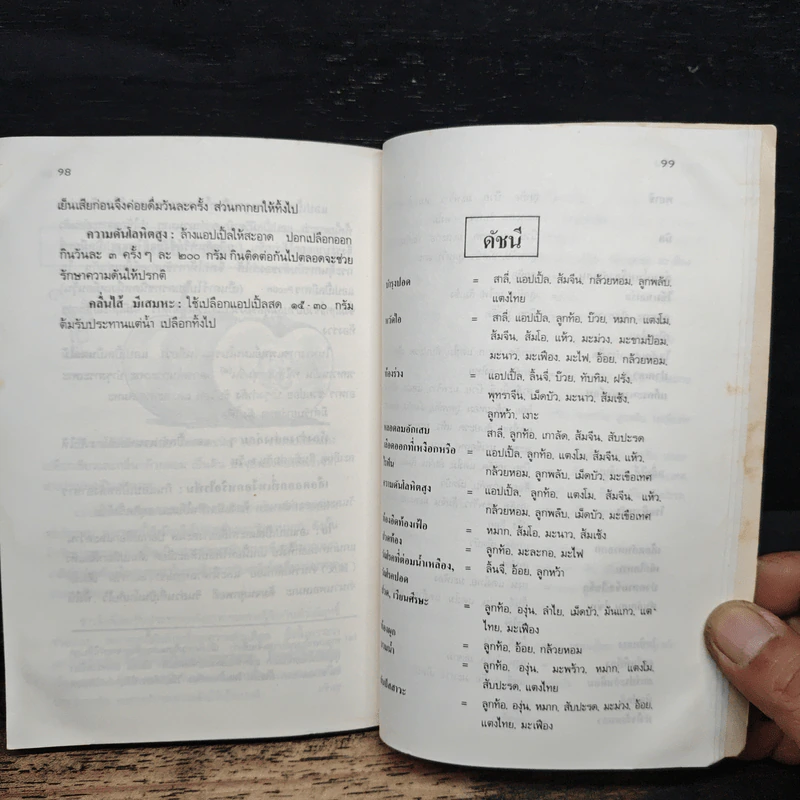 98
เย็นเสียก่อนจึงค่อยดื่มวันละครั้ง ส่วนกากยาให้ทิ้งไป
ความดันโลหิตสูง : ล้างแอปเปิ้ลให้สะอาด ปอกเปลือกออก
กินวันละ ๓ ครั้งๆ ละ ๒๐๐ กรัม กินติดต่อกันไปตลอดจะช่วย
รักษาความดันให้ปรกติ
คลื่นไส้ มีเสมหะ : ใช้เปลือกแอปเปิ้ลสด ๑๕-๓๐ กรัม
ต้มรับประทานแต่น้ำ เปลือกทิ้งไป
99
ดัชนี
บำรุงปอด = สาลี่, แอปเปิ้ล, ส้มจีน, กล้วยหอม, ลูกพลับ,
แตงไทย
แก้ไอ = สาลี่, แอปเปิ้ล, ลูกท้อ, บ๊วย, หมาก, แตงโม,
ส้มจีน, ส้มโอ, แห้ว, มะม่วง, มะขามป้อม,
มะนาว, มะเฟือง, มะไฟ, อ้อย, กล้วยหอม,
ท้องร่วง = แอปเปิ้ล, ลิ้นจี่, บ๊วย, ทับทิม, ฝรั่ง,
พุทราจีน, เม็ดบัว, มะนาว, ส้มเช้ง,
ลูกหว้า, เงาะ
หลอดลมอักเสบ = สาลี่, ลูกท้อ, เกาลัด, ส้มจีน, สับปะรด
เลือดออกที่เหงือกหรือ = แอปเปิ้ล, ลูกท้อ, แตงโม, ส้มจีน, แห้ว,
ไรฟัน กล้วยหอม, ลูกพลับ, เม็ดบัว, มะเขือเทศ
ความดันโลหิตสูง = แอปเปิ้ล, ลูกท้อ, แตงโม, ส้มจีน, แห้ว,
กล้วยหอม, ลูกพลับ, เม็ดบัว, มะเขือเทศ
ท้องอืดท้องเฟ้อ = หมาก, ส้มโอ, มะนาว, ส้มเช้ง
ปวดท้อง = ลูกท้อ, มะละกอ, มะไฟ
ต่อมน้ำเหลือง, = ลิ้นจี่, อ้อย, ลูกหว้า
ปอด
เวียนศีรษะ = ลูกท้อ, องุ่น, ลำไย, เม็ดบัว, มันแกว, แต
ไทย, มะเฟือง
ท้องผูก = ลูกท้อ, อ้อย, กล้วยหอม
= ลูกท้อ, องุ่น, มะพร้าว, หมาก, แตงโม,
สับปะรด, แตงไทย
ปัสสาวะ = ลูกท้อ, องุ่น, หมาก, สับปะรด, มะม่วง, อ้อย,
แตงไทย, มะเฟือง